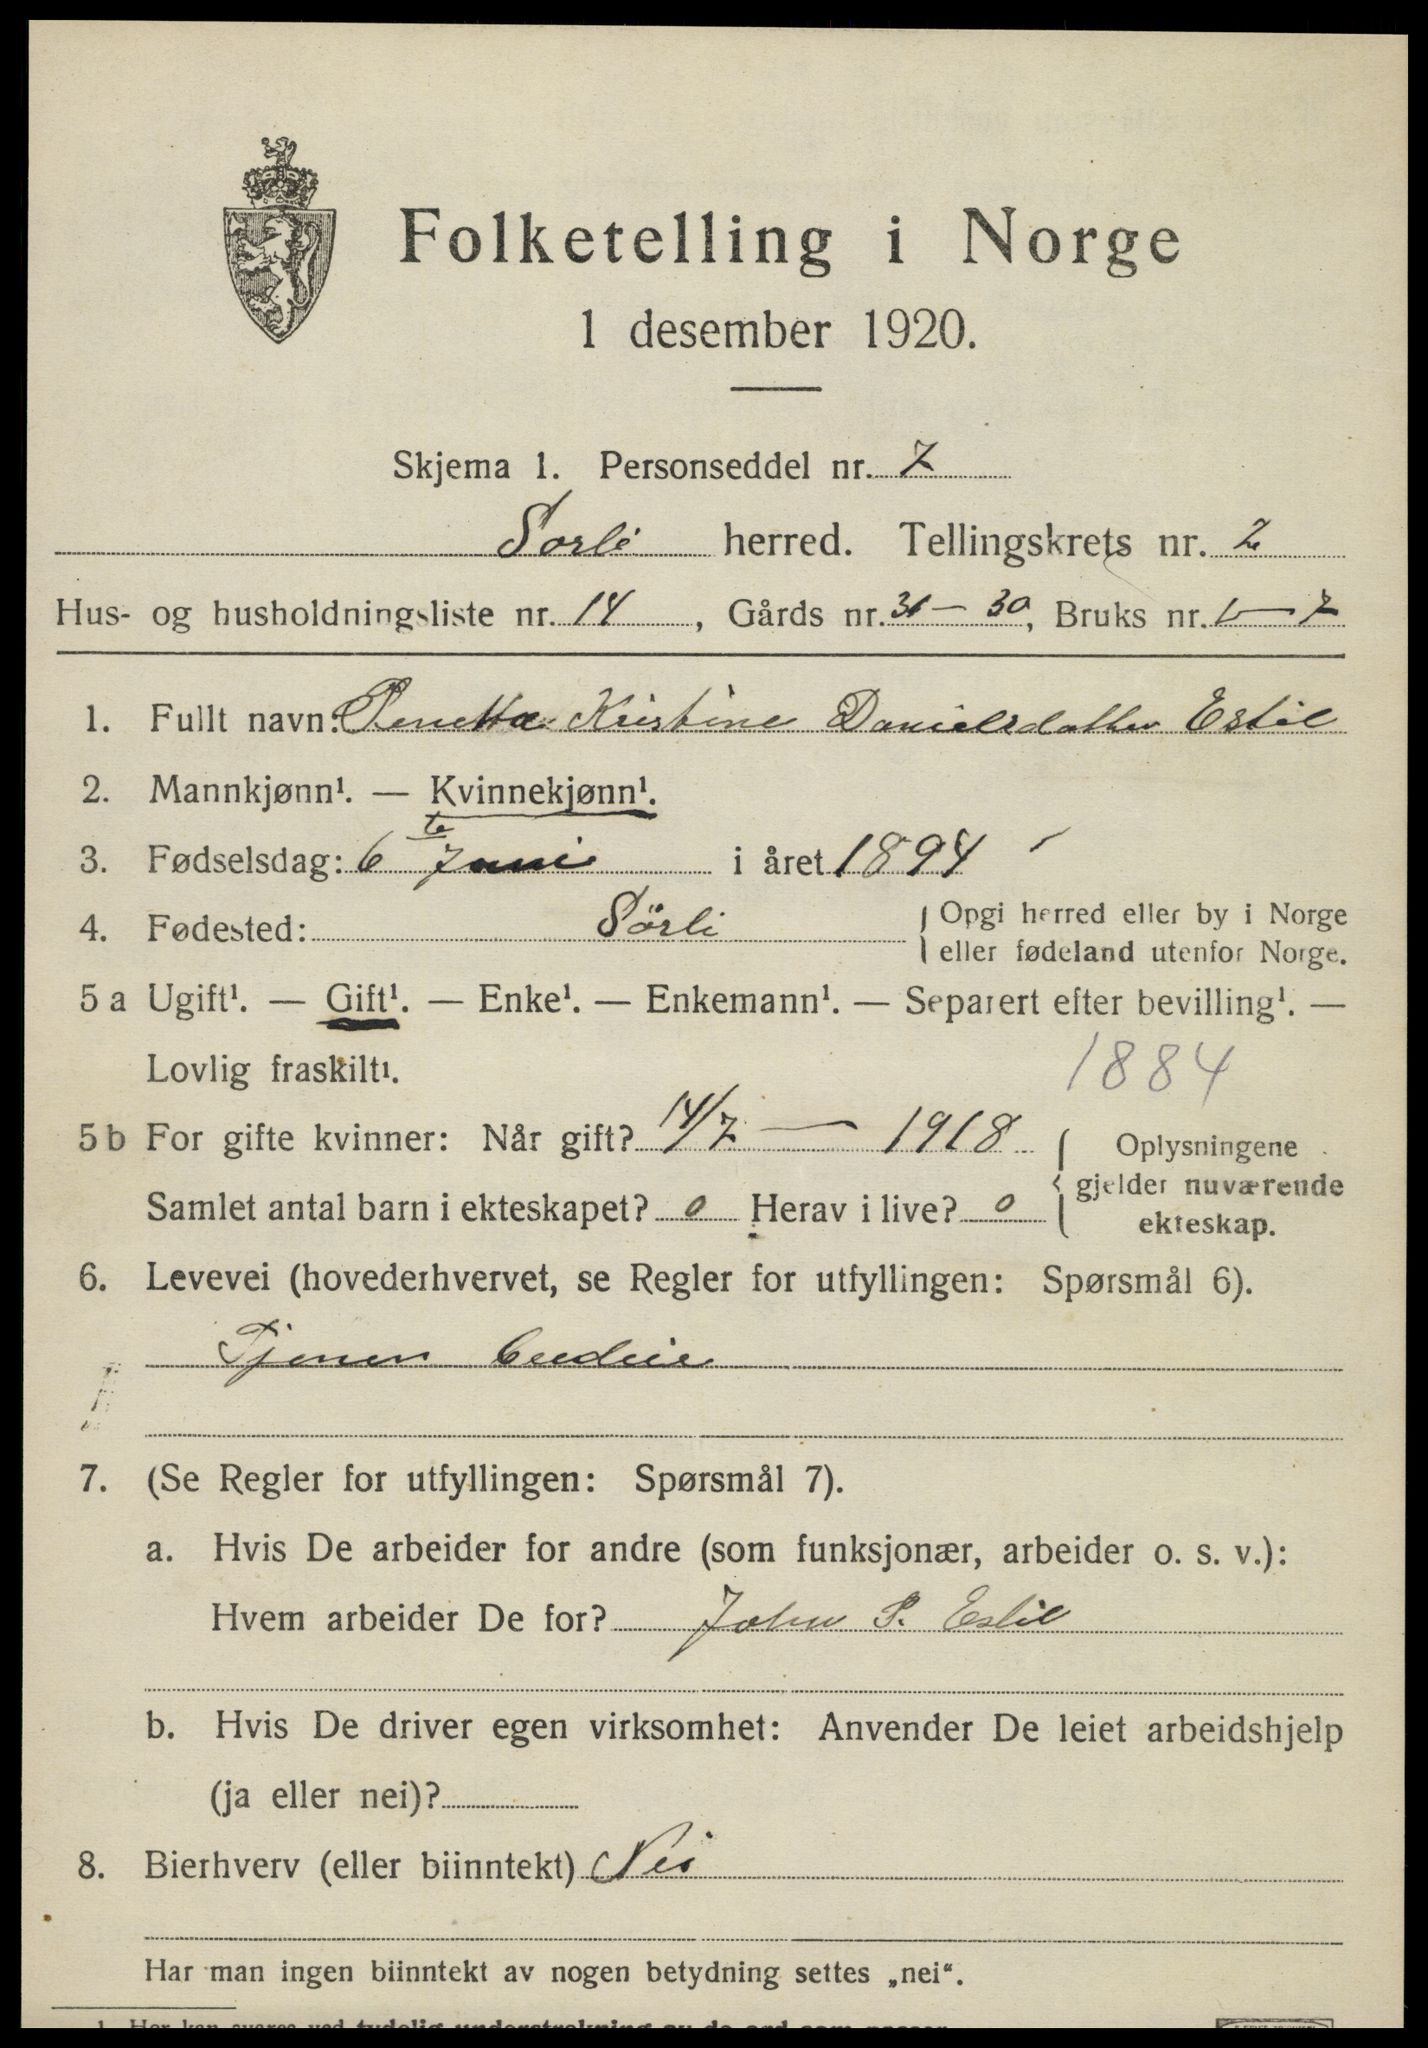 Folketelling i Norge
1 desember 1920.
Skjema 1. Personseddel nr. 7
Sorli herred. Tellingskrets nr. 2
Hus- og husholdningsliste nr. 14, Gårds nr. 31 — 30, Bruks nr. — 7
1. Fullt navn: Kristine Danielsdatter Estil
2. Mannkjønn¹. — Kvinnekjønn¹.
3. Fødselsdag: 6 te Juni i året 1894
4. Fødested: Sörli { Opgi herred eller by i Norge
eller fødeland utenfor Norge.
5 a Ugift¹. — Gift¹. — Enke¹. — Enkemann¹. — Separert efter bevilling¹. —
Lovlig fraskilt¹. 1884
5 b For gifte kvinner: Når gift? 14/7 — 1918 { Oplysningene
gjelder nuværende
ekteskap.
Samlet antal barn i ekteskapet? 0 Herav i live? 0
6. Levevei (hovederhvervet, se Regler for utfyllingen: Spørsmål 6).
Tjener
7. (Se Regler for utfyllingen: Spørsmål 7).
a. Hvis De arbeider for andre (som funksjonær, arbeider o. s. v.):
Hvem arbeider De for? John P. Estil
b. Hvis De driver egen virksomhet: Anvender De leiet arbeidshjelp
(ja eller nei)?
8. Bierhverv (eller biinntekt) Nei
Har man ingen biinntekt av nogen betydning settes „nei“.